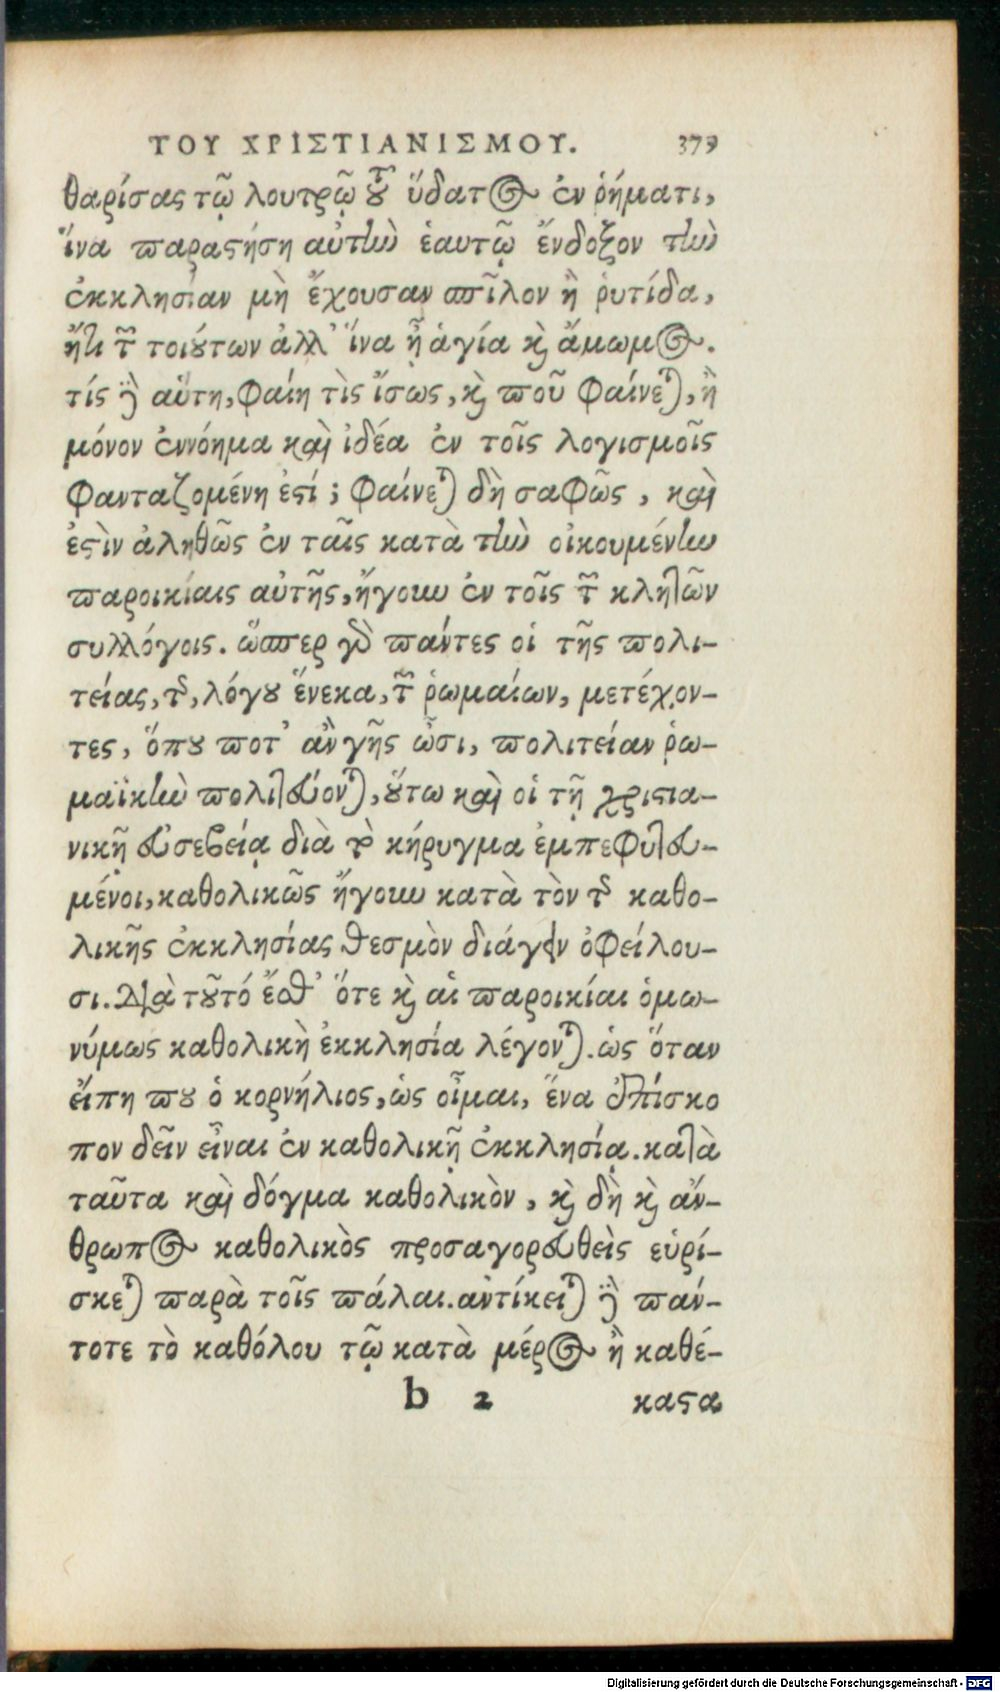 ΤΟΥ ΧΡΙΣΤΙΑΝΙΣΜΟΥ. 379
θαρίσας τῷ λουτρῷ τοῦ ὕδατος ἐν ῥήματι,
ἵνα παραστήσῃ αὐτὴν ἑαυτῷ ἔνδοξον τὴν
ἐκκλησίαν μὴ ἔχουσαν σπῖλον ἢ ῥυτίδα,
ἤ τι τῶν τοιούτων ἀλλ' ἵνα ᾖ ἁγία καὶ ἄμωμος.
τίς δὲ αὕτη, φαίη τὶς ἴσως, καὶ ποῦ φαίνεται, ἢ
μόνον ἐννόημα καὶ ἰδέα ἐν τοῖς λογισμοῖς
φανταζομένη ἐστί; φαίνεται δὴ σαφῶς, καὶ
ἐστὶν ἀληθῶς ἐν ταῖς κατὰ τὴν οἰκουμένην
παροικίαις αὐτῆς, ἤγουν ἐν τοῖς τῶν κλητῶν
συλλόγοις. ὥσπερ γὰρ πάντες οἱ τῆς πολι-
τείας, τῆς, λόγου ἕνεκα, τῶν ῥωμαίων, μετέχον-
τες, ὅπου ποτ' ἂν γῆς ὦσι, πολιτείαν ῥω-
μαϊκὴν πολιτεύονται, οὕτω καὶ οἱ τῇ χριστια-
νικῇ εὐσεβείᾳ διὰ τὸ κήρυγμα ἐμπεφυτευ-
μένοι, καθολικῶς ἤγουν κατὰ τὸν τῆς καθο-
λικῆς ἐκκλησίας θεσμὸν διάγειν ὀφείλου-
σι. Διὰ τοῦτό ἔσθ' ὅτε καὶ αἱ παροικίαι ὁμω-
νύμως καθολικὴ ἐκκλησία λέγονται. ὡς ὅταν
εἴπῃ που ὁ κορνήλιος, ὡς οἶμαι, ἕνα ἐπίσκο
πον δεῖν εἶναι ἐν καθολικῇ ἐκκλησίᾳ. κατὰ
ταῦτα καὶ δόγμα καθολικὸν, καὶ δὴ καὶ ἄν-
θρωπος καθολικὸς προσαγορευθεὶς εὑρί-
σκεται παρὰ τοῖς πάλαι. ἀντίκειται δὲ πάν-
τοτε τὸ καθόλου τῷ κατὰ μέρος ἢ καθέ-
b 2 καστα
Digitalisierung gefördert durch die Deutsche Forschungsgemeinschaft - DFG